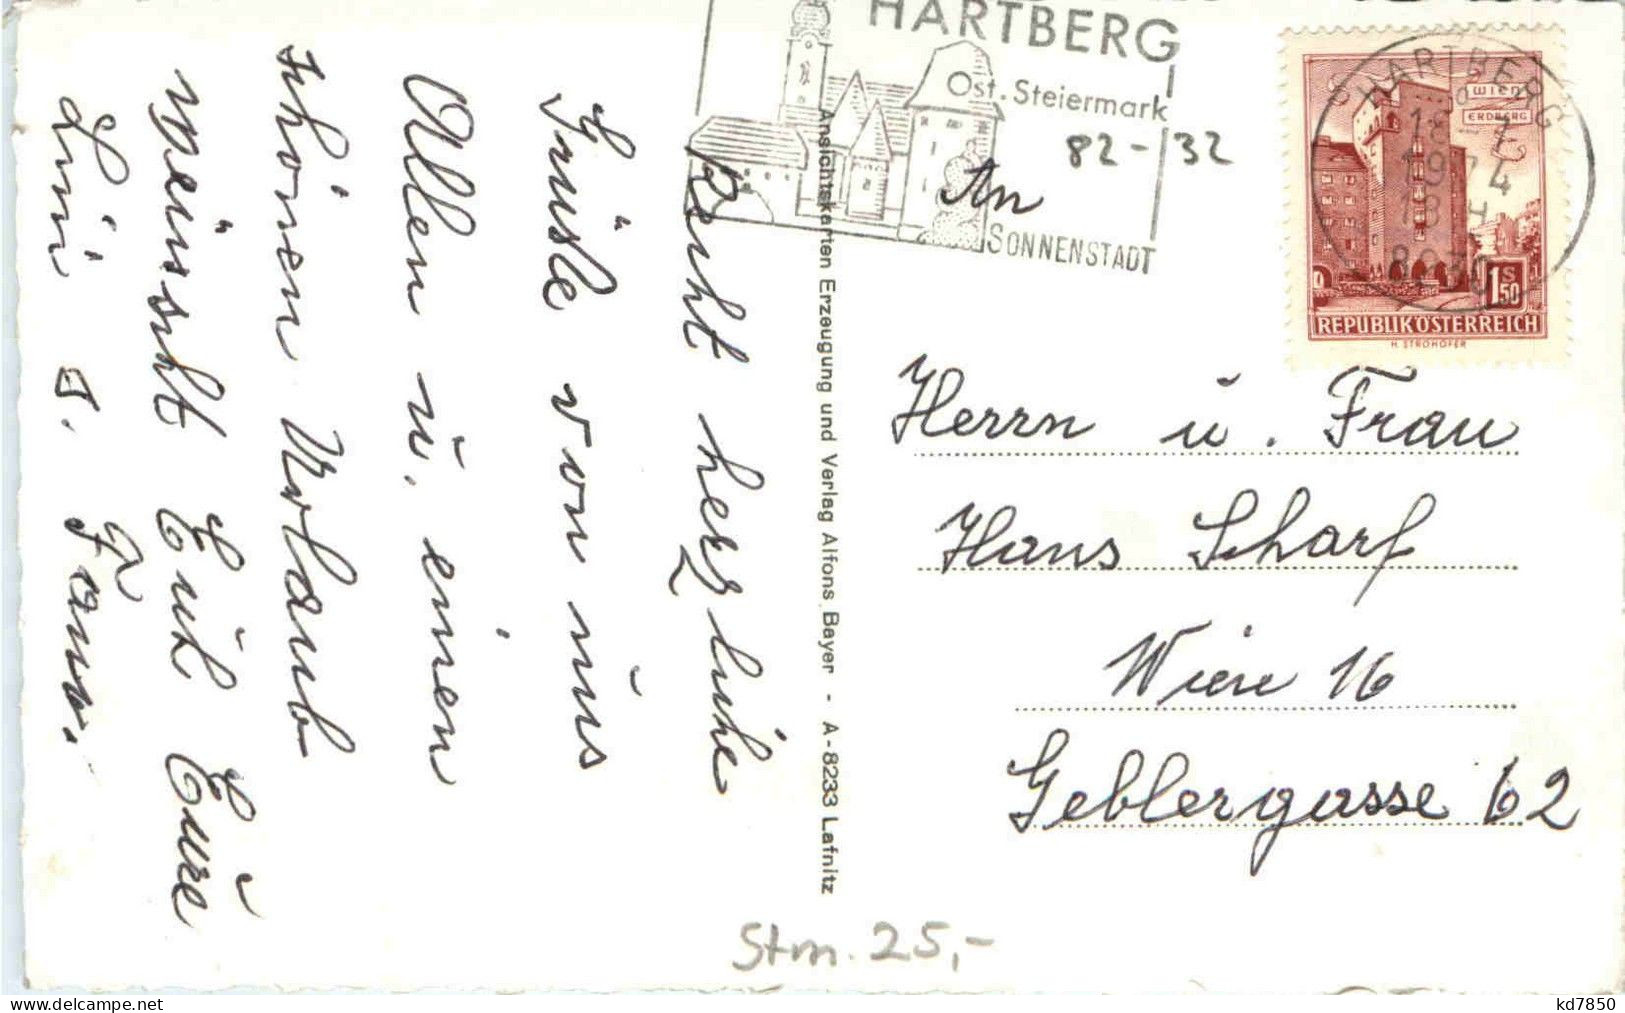 HARTBERG
Ost. Steiermark
SONNENSTADT
82-32
HARTBERG
1974
18 H
8230
WIEN
ERDBERG
1 S 50
REPUBLIK ÖSTERREICH
H. STROHOFER
An
Herrn u. Frau
Hans Scharf
Wien 16
Geblergasse 62
Ansichtskarten Erzeugung und Verlag Alfons Bayer - A-8233 Lafnitz
Recht herzliche
Grüsse von uns
Allen u. einen
schönen Urlaub
wünscht Euch Eure
Fam.
Stm. 25,-
www.delcampe.net
kd7850